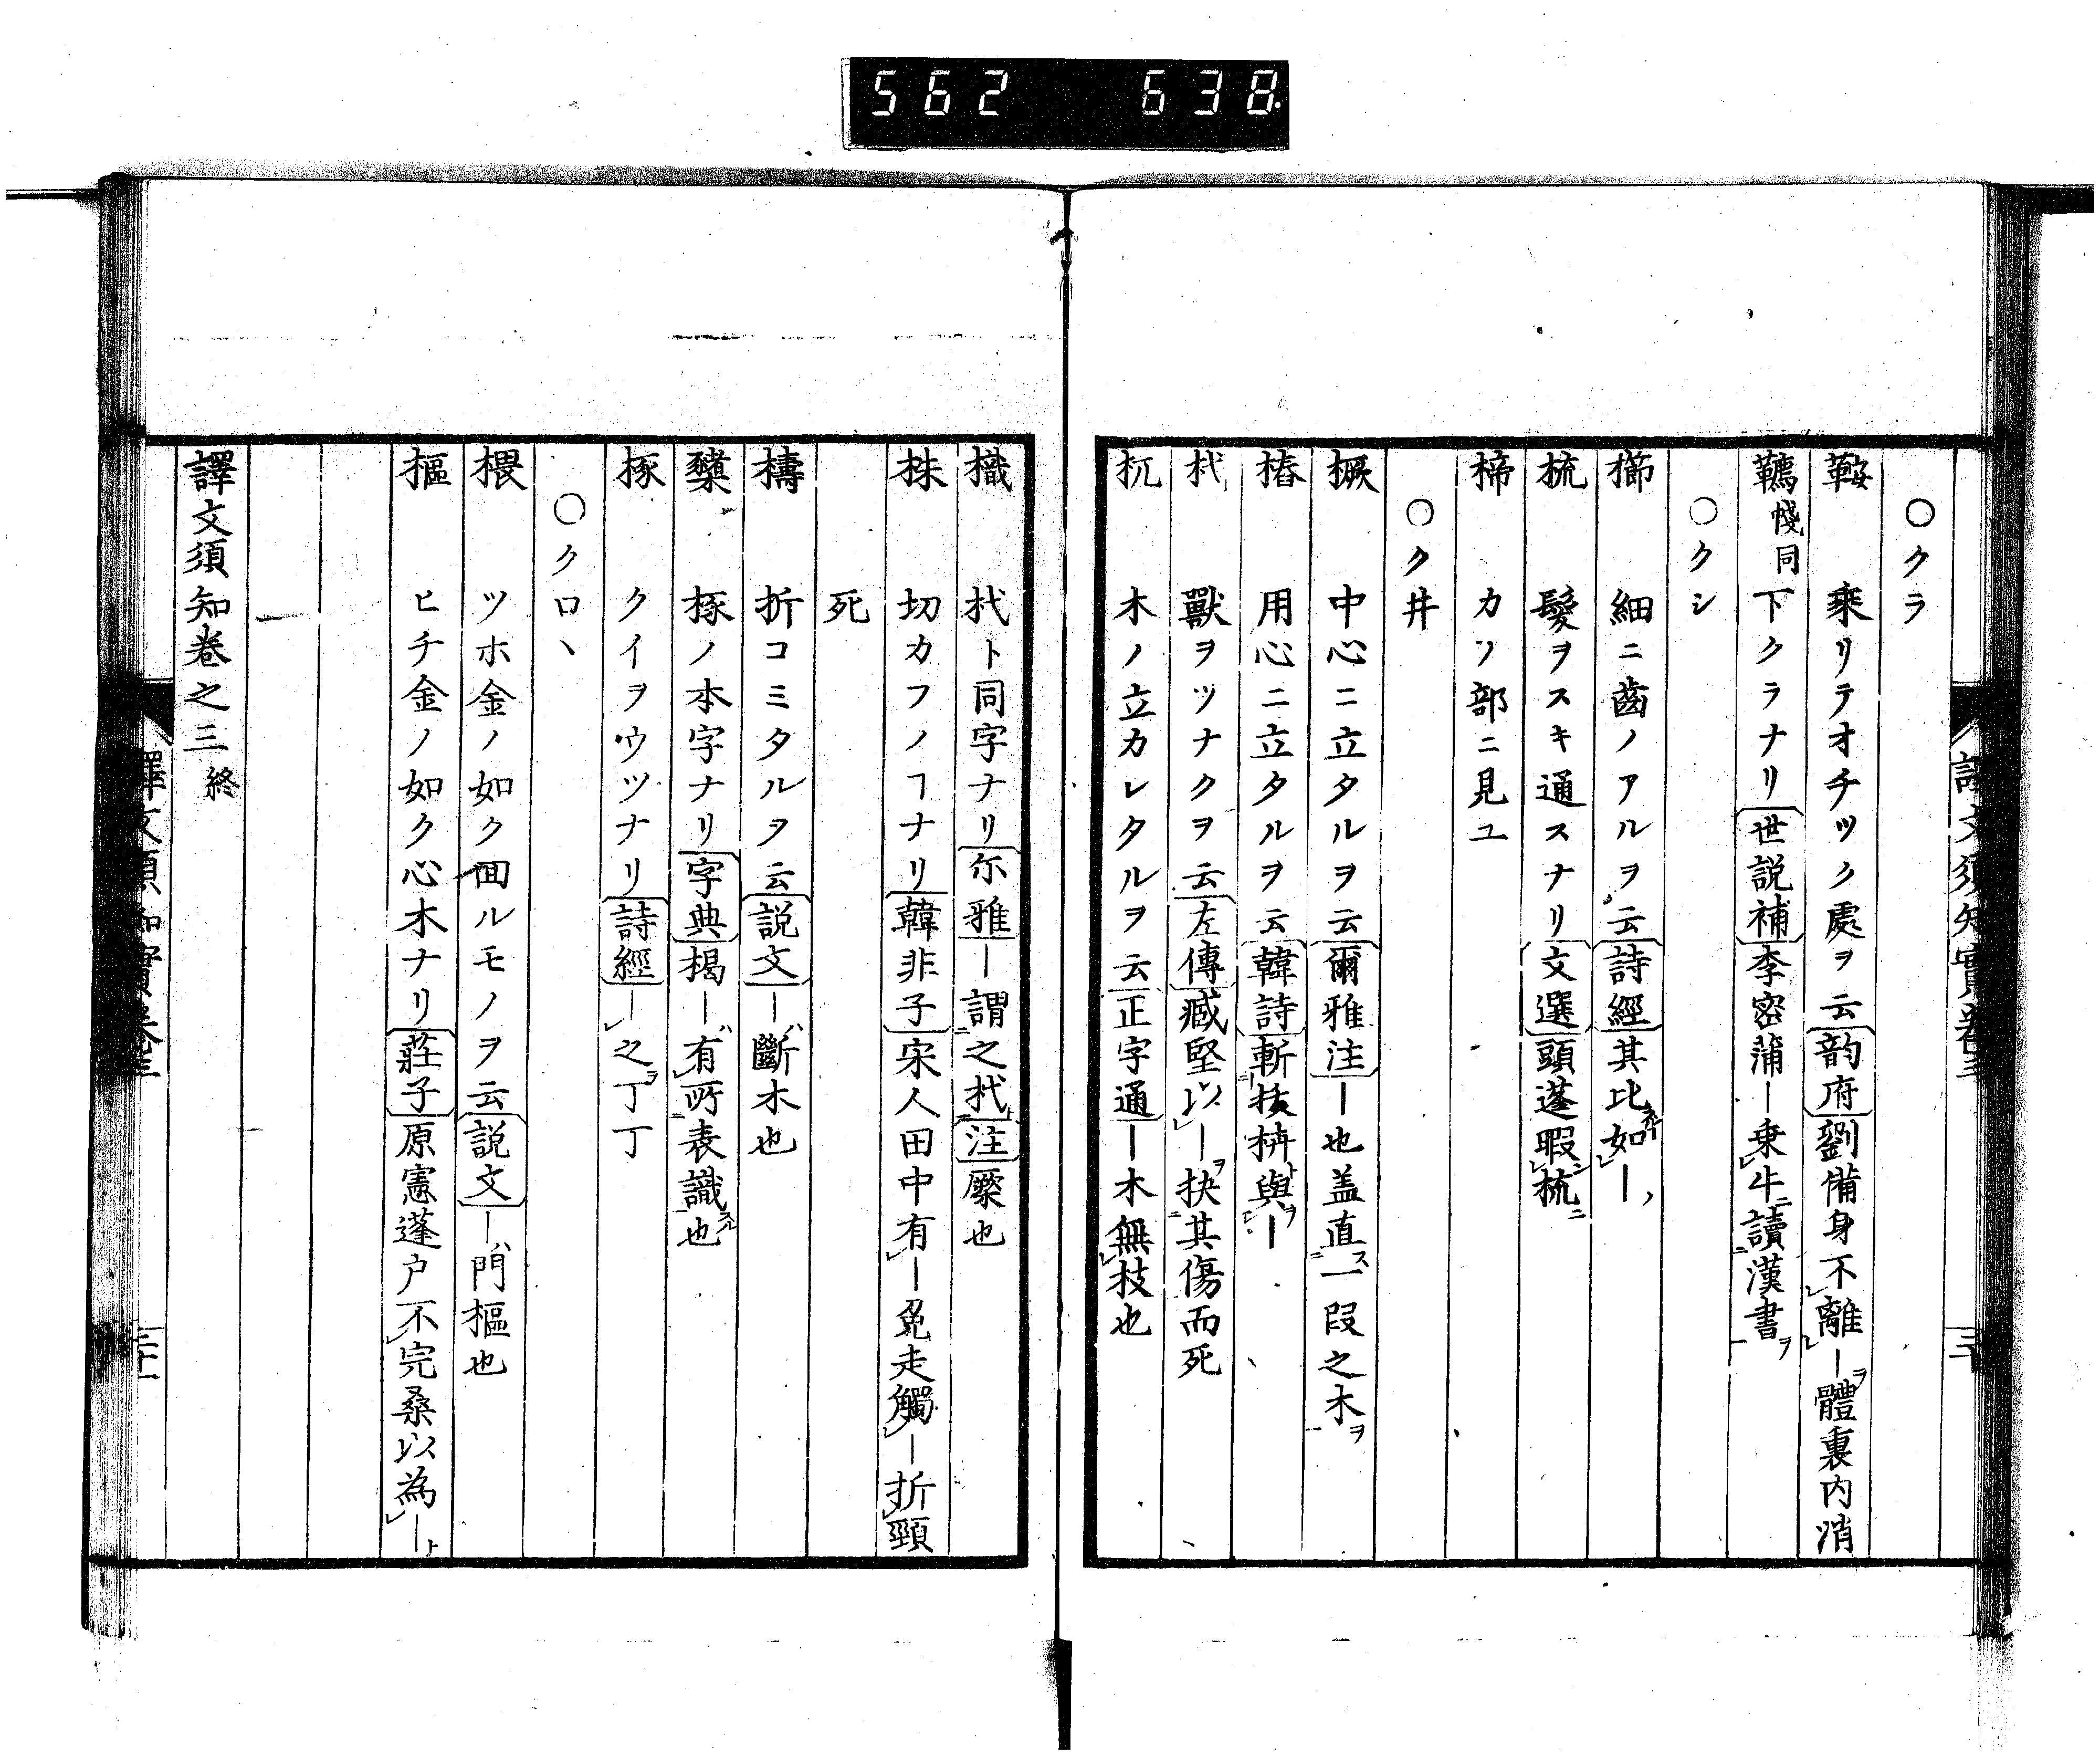 562 638
○クラ
鞍 乘リテオチツク處ヲ云韵府劉備身不離―體裏内消
韉 幭同 下クラナリ世説補李密蒲―乗牛讀漢書
○クシ
櫛 細ニ齒ノアルヲ云詩經其比如―
梳 髮ヲスキ通スナリ文選頭蓬暇梳
楴 カソ部ニ見ユ
○ク井
橛 中心ニ立タルヲ云爾雅注―也盖直一段之木
樁 用心ニ立タルヲ云韓詩斬拔枿與―
杙 獸ヲツナクヲ云左傳臧堅以―抉其傷而死
杌 木ノ立カレタルヲ云正字通―木無枝也
譯文須知實卷三
樴 杙ト同字ナリ尔雅―謂之杙注橜也
株 切カフノヿナリ韓非子宋人田中有―兎走觸―折頸
死
檮 折コミタルヲ云説文―斷木也
櫫 椓ノ本字ナリ字典楬―有所表識也
椓 クイヲウツナリ詩經―之丁丁
○クロヽ
椳 ツホ金ノ如ク回ルモノヲ云説文―門樞也
樞 ヒチ金ノ如ク心木ナリ莊子原憲蓬户不完桑以為―
譯文須知卷之三終
譯文須知實卷三